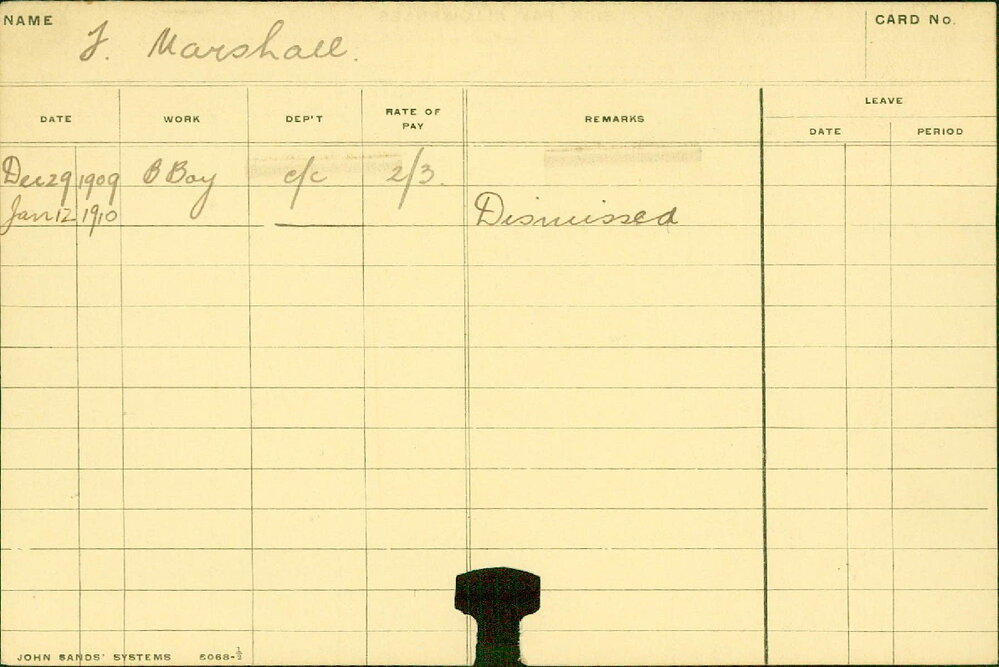 NAME J. Marshall. CARD No.
DATE WORK DEP'T RATE OF PAY REMARKS LEAVE
DATE PERIOD
Dec 29 1909 B Boy c/c 2/3.
Jan 12 1910 Dismissed
JOHN SANDS' SYSTEMS 5068-½